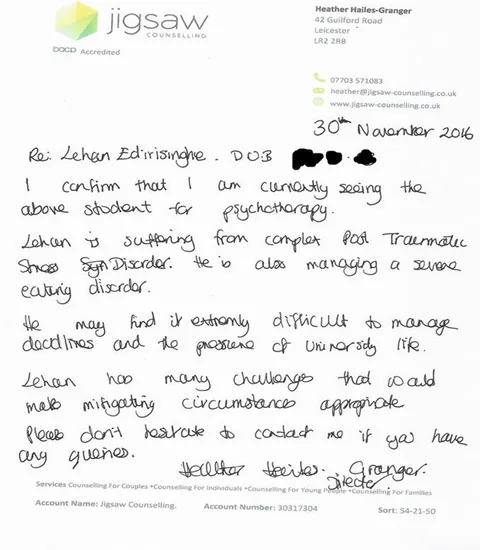 jigsaw
COUNSELLING
bacp Accredited
Heather Hailes-Granger
42 Guilford Road
Leicester
LR2 2RB
07703 571083
heather@jigsaw-counselling.co.uk
www.jigsaw-counselling.co.uk
30th November 2016
Re: Lehan Edirisinghe. DOB
I confirm that I am currently seeing the
above student for psychotherapy.
Lehan is suffering from complex Post Traumatic
Stress Syn Disorder. He is also managing a severe
eating disorder.
He may find it extremly difficult to manage
deadlines and the pressure of University life.
Lehan has many challenges that would
make mitigating circumstances appropriate.
Please don't hesitate to contact me if you have
any queries.
Heather Hailes-Granger.
Director
Services Counselling For Couples •Counselling For Individuals •Counselling For Young People •Counselling For Families
Account Name: Jigsaw Counselling. Account Number: 30317304 Sort: 54-21-50